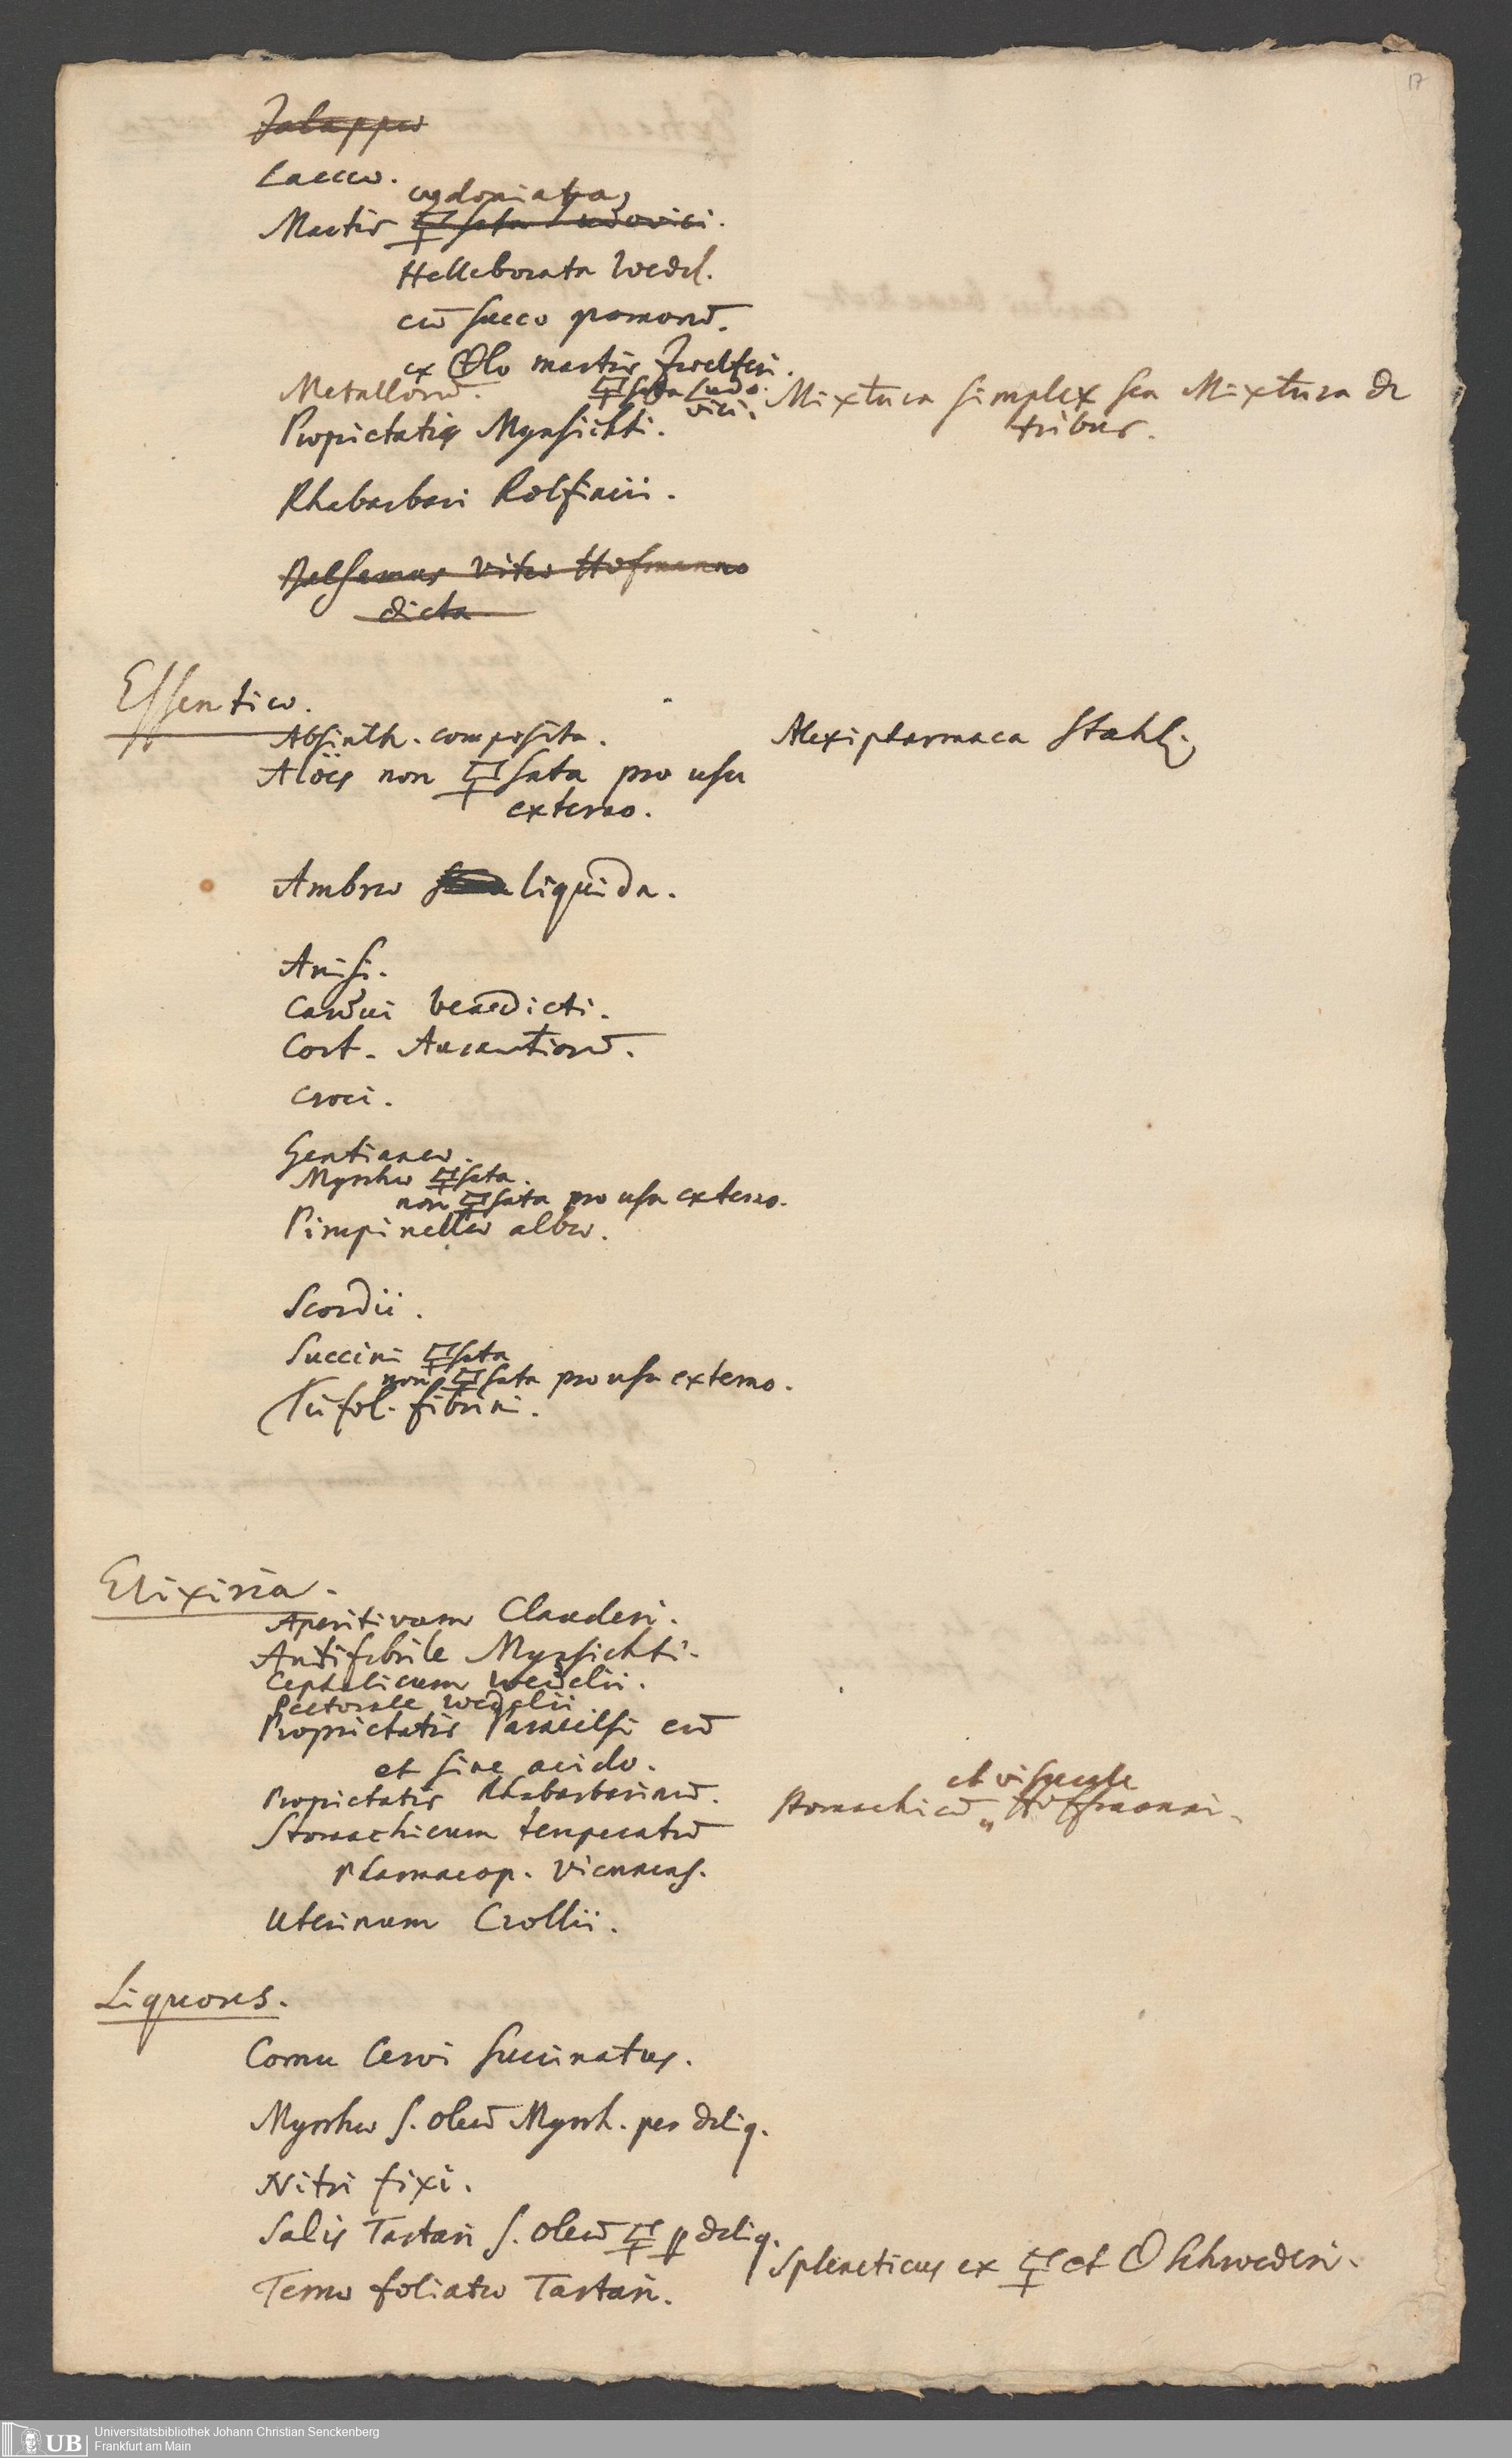 17
Jalappæ
Laccæ.
cydoniata,
Martis 🜿sata Ludovici.
Helleborata Wedel.
cū succo pomorū.
ex 🜖lo martis Zwelferi.
Metallorū. 🜿sata Ludo
vici.
Mixtura simplex seu Mixtura de
tribus.
Proprietatis Mynsichti.
Rhabarbari Rolfincii.
Balsamus vitæ Hofmanno
dicta
Essentiæ.
Absinth. composita.
Alexipharmaca Stahlii
Aloës non 🜿sata pro usu
externo.
Ambræ liquida.
Anisi.
Cardui benedicti.
Cort. Aurantiorū.
Croci.
Gentianæ.
Myrrhæ 🜿sata.
non 🜿sata pro usu externo.
Pimpinellæ albæ.
Scordii.
Succini 🜿sata
non 🜿sata pro usu externo.
Trifol. fibrini.
Elixiria.
Aperitivum Clauderi.
Antifebrile Mynsichti.
Cephalicum Wedelii.
Pectorale Wedelii
Proprietatis Paracelsi cū
et sine acido.
Proprietatis Rhabarbarinū.
et viscerale
Stomachicū „ Hoffmanni.
Stomachicum temperatū
Pharmacop. Viennens.
Uterinum Crollii.
Liquores.
Cornu Cervi succinatus.
Myrrhæ s. oleū Myrrh. per deliq.
Nitri fixi.
Salis Tartari s. oleū 🜿 p deliq.
Spleneticus ex 🜿 et Schroederi.
Terræ foliatæ Tartari.
UB
Universitätsbibliothek Johann Christian Senckenberg
Frankfurt am Main